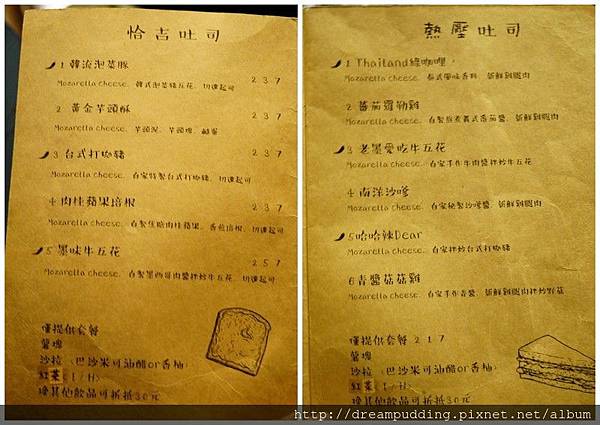 恰吉吐司
1 韓流泡菜豚
237
Mozarella cheese. 韓式泡菜豬五花. 切達起司
2 黃金芋頭酥
237
Mozarella cheese. 芋頭泥. 芋頭塊. 鹹蛋
3 台式打拋豬
237
Mozarella cheese. 自家特製台式打拋豬. 切達起司
4 肉桂蘋果培根
237
Mozarella cheese. 自製焦糖肉桂蘋果. 香煎培根. 切達起司
5 墨味牛五花
257
Mozarella cheese. 自製墨西哥肉醬拌炒牛五花. 切達起司
僅提供套餐
薯塊
沙拉 (巴沙米可油醋or香柚)
紅茶 (I/H)
換其他飲品可折抵30元
熱壓吐司
1 Thailand綠咖哩
Mozarella cheese. 泰式風味香料. 新鮮雞腿肉
2 蕃茄羅勒雞
Mozarella cheese. 自製熬煮義式番茄醬. 新鮮雞腿肉
3 老墨愛吃牛五花
Mozarella cheese. 自家手作牛肉醬拌炒牛五花
4 南洋沙嗲
Mozarella cheese. 自家秘製沙嗲醬. 新鮮雞腿肉
5 哈哈辣Dear
Mozarella cheese. 自家拌炒台式打拋豬
6 青醬菇菇雞
Mozarella cheese. 自家手作青醬. 新鮮雞腿肉拌炒野菇
僅提供套餐 217
薯塊
沙拉 (巴沙米可油醋or香柚)
紅茶 (I/H)
換其他飲品可折抵30元
http://dreampudding.pixnet.net/album